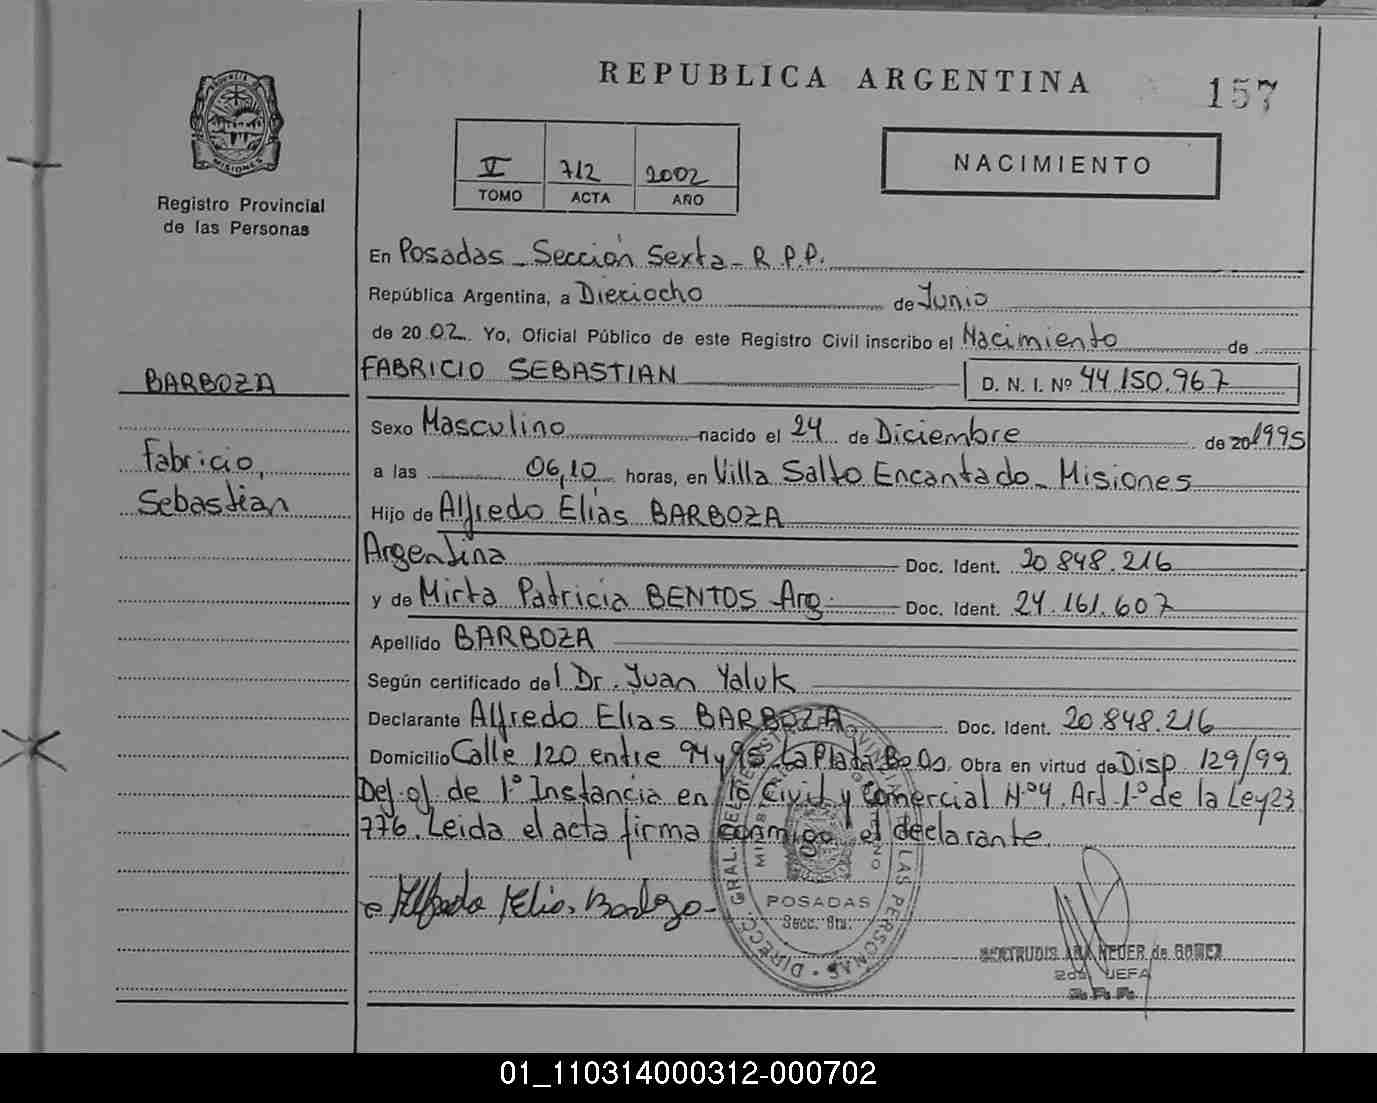 REPUBLICA ARGENTINA
157
PROVINCIA
MISIONES
Registro Provincial
de las Personas
V 712 2002
TOMO ACTA AÑO
NACIMIENTO
En Posadas - Sección Sexta - R.P.P.
República Argentina, a Dieciocho de Junio
de 20 02 Yo, Oficial Público de este Registro Civil inscribo el Nacimiento de
BARBOZA
FABRICIO SEBASTIAN D. N. I. Nº 44.150.967
Sexo Masculino nacido el 24 de Diciembre de 20 1995
Fabricio,
a las 06,10 horas, en Villa Salto Encantado - Misiones
Sebastian
Hijo de Alfredo Elías BARBOZA
Argentina Doc. Ident. 20.848.216
y de Mirta Patricia BENTOS - Arg. Doc. Ident. 24.161.607
Apellido BARBOZA
Según certificado del Dr. Juan Yaluk
Declarante Alfredo Elias BARBOZA Doc. Ident. 20.848.216
Domicilio Calle 120 entre 94 y 95 La Plata Bs As. Obra en virtud de Disp 129/99
Def. of de 1º Instancia en lo Civil y Comercial Nº4. Art. 1º de la Ley 23
776. Leida el acta firma conmigo el declarante.
Alfredo Elias Barboza
DIRECC. GRAL. DEL REGISTRO PROVINCIAL DE LAS PERSONAS
POSADAS
Secc. 6ta.
GERTRUDIS ANA de GOMEZ
2da. JEFA
R. P. P.
01_110314000312-000702